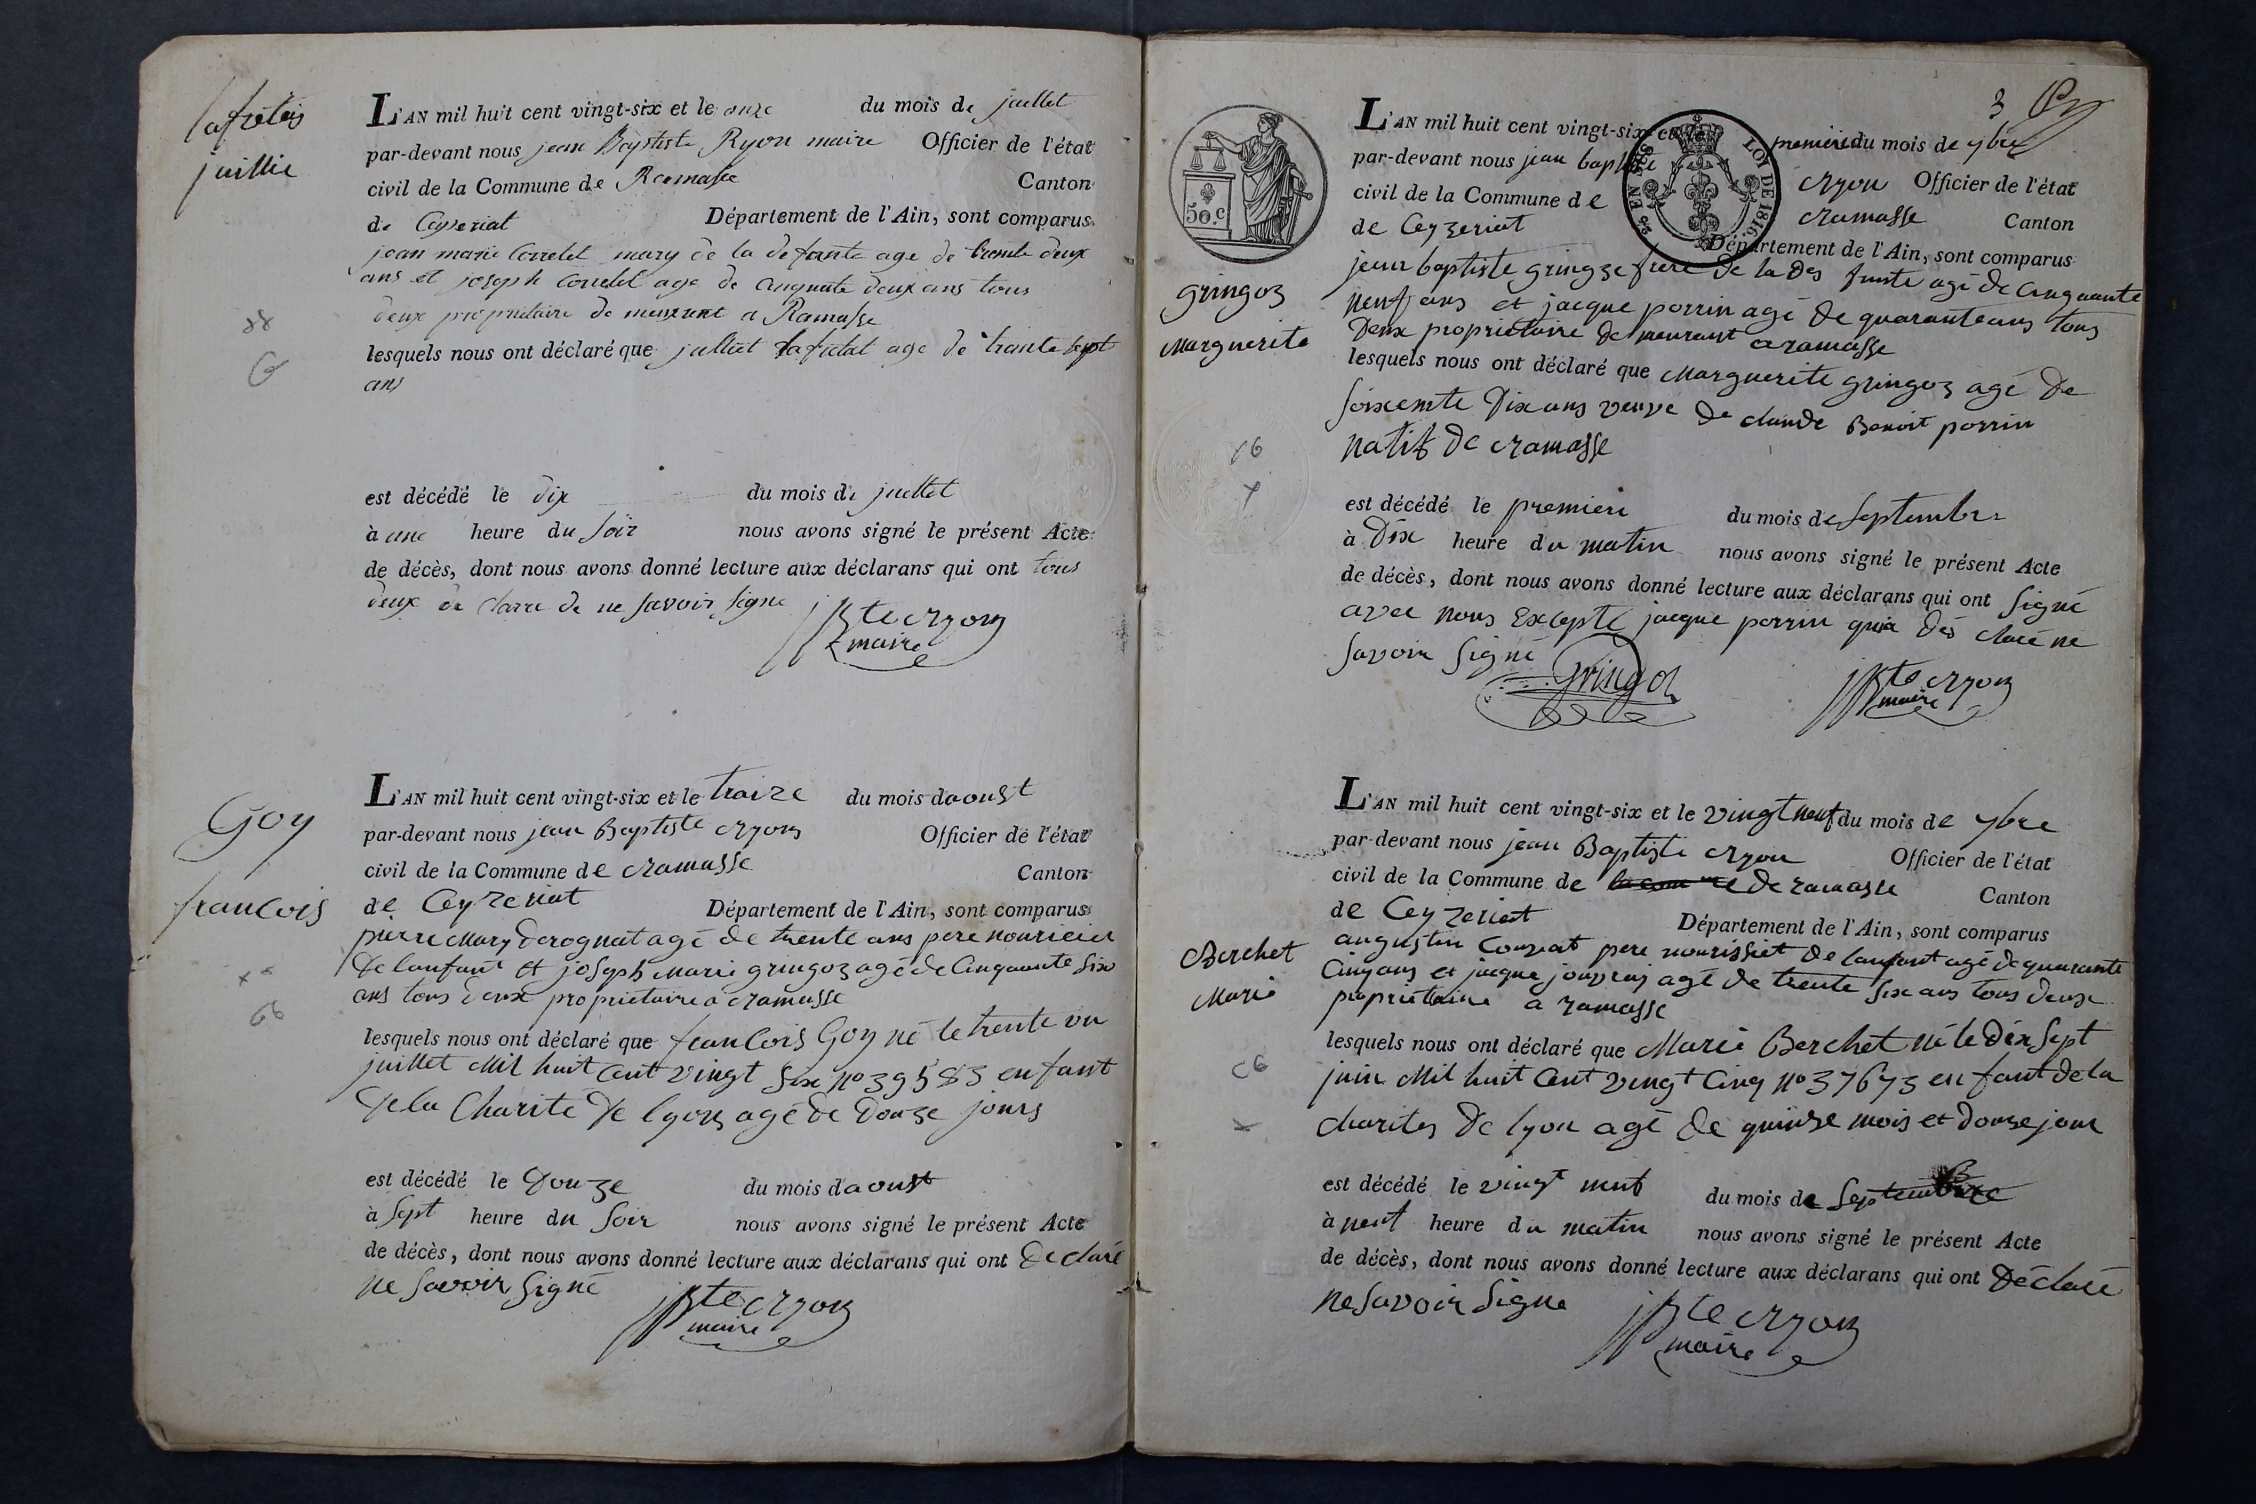 juillie
L'AN mil huit cent vingt-six et le onze du mois de juillet
par-devant nous jean Baptiste Ryon maire Officier de l'état
civil de la Commune de Ramasse Canton
de Ceyseriat Département de l'Ain, sont comparus
jean marie Corretel mary de la defunte age de trente deux
ans et joseph Corretel age de cinquate deux ans tous
deux propriétaire de meurant a Ramasse
lesquels nous ont déclaré que julliet age de trante sept
ans
est décédé le dix du mois de juellet
à une heure du soir nous avons signé le présent Acte
de décès, dont nous avons donné lecture aux déclarans qui ont tous
deux de clarre de ne savoir signe
jBte cryon
maire
Goy
francois
L'AN mil huit cent vingt-six et le traize du mois daoust
par-devant nous jean Baptiste cryon Officier de l'état
civil de la Commune de cramasse Canton
de Ceyzeriat Département de l'Ain, sont comparus
pierre Mary derognat agé de trente ans pere nouricier
de lanfant et joseph Marie gringoz agé de Cinquante Six
ans tous deux proprietaire a cramasse
lesquels nous ont déclaré que francois Goy né le trente un
juillet Mil huit Cent vingt Six no 39583 enfant
de la Charité de lyon agé de Douze jours
est décédé le Douze du mois daoust
à Sept heure du Soir nous avons signé le présent Acte
de décès, dont nous avons donné lecture aux déclarans qui ont declaré
ne Savoir Signé
jBte cryon
maire
3
50.c
EN SUS
LOI DE 1816.
gringoz
Marguerite
L'AN mil huit cent vingt-six et le premier du mois de 7bre
par-devant nous jean baptiste cryon Officier de l'état
civil de la Commune de cramasse Canton
de Ceyzeriat Département de l'Ain, sont comparus
jean baptiste gringze frere de la des funte agé de Cinquante
neuf ans et jacque porrin agé de quarante ans tous
Deux proprietaire de meurant a ramasse
lesquels nous ont déclaré que Marguerite gringoz agé de
soixente Dix ans veuve de claude Benoit porrin
natif de cramasse
est décédé le premier du mois de Septembre
à Dix heure du matin nous avons signé le présent Acte
de décès, dont nous avons donné lecture aux déclarans qui ont Signé
avec nous Excepté jacque porrin qui a dés claré ne
Savoir Signé
Gringoz
jBte cryon
maire
Berchet
Marie
L'AN mil huit cent vingt-six et le vingt neuf du mois de 7bre
par-devant nous jean Baptiste cryon Officier de l'état
civil de la Commune de de ramasse Canton
de Ceyzeriat Département de l'Ain, sont comparus
augustin Convat pere nourissiet de lanfant agé de quarante
Cinq ans et jacque agé de trente Six ans tous deux
proprietaire a ramasse
lesquels nous ont déclaré que Marie Berchet né le dix Sept
juin Mil huit Cent vingt Cinq no 37673 enfant de la
charites de lyon agé de quinze mois et douze jour
est décédé le vingt neuf du mois de Septembre
à neuf heure du matin nous avons signé le présent Acte
de décès, dont nous avons donné lecture aux déclarans qui ont Déclaré
ne Savoir Signe
jBte cryon
maire